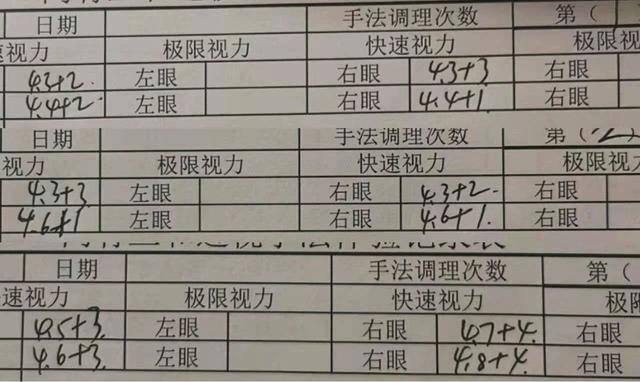 日期 手法调理次数 第(
速视力 极限视力 快速视力 极限视
4.3+2 左眼 右眼 4.3+3 右眼
4.4+2 左眼 右眼 4.4+1 右眼
日期 手法调理次数 第(2)
视力 极限视力 快速视力 极限视力
4.3+3 左眼 右眼 4.3+2 右眼
4.6+1 左眼 右眼 4.6+1 右眼
日期 手法调理次数 第(
速视力 极限视力 快速视力 极限
4.5+3 左眼 右眼 4.7+4 右眼
4.6+3 左眼 右眼 4.8+4 右眼